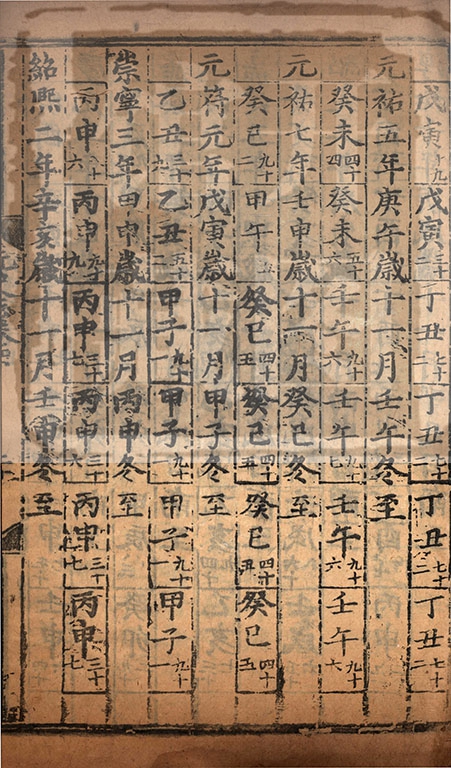 戊寅十九戊寅三十二丁丑七十二丁丑七十二丁丑七十二丁丑七十二
元祐五年庚午歲十一月壬午冬至
癸未四十四癸未五十六壬午九十六壬午九十七壬午九十六壬午九十六
元祐七年壬申歲十一月癸巳冬至
癸巳九十二甲午五癸巳四十五癸巳四十五癸巳四十五癸巳四十五
元符元年戊寅歲十一月甲子冬至
乙丑三十六乙丑五十二甲子九十一甲子九十一甲子九十一甲子九十一
崇寧三年甲申歲十一月丙申冬至
丙申十六丙申九十九丙申三十七丙申三十六丙申三十七丙申三十七
紹熙二年辛亥歲十一月壬申冬至